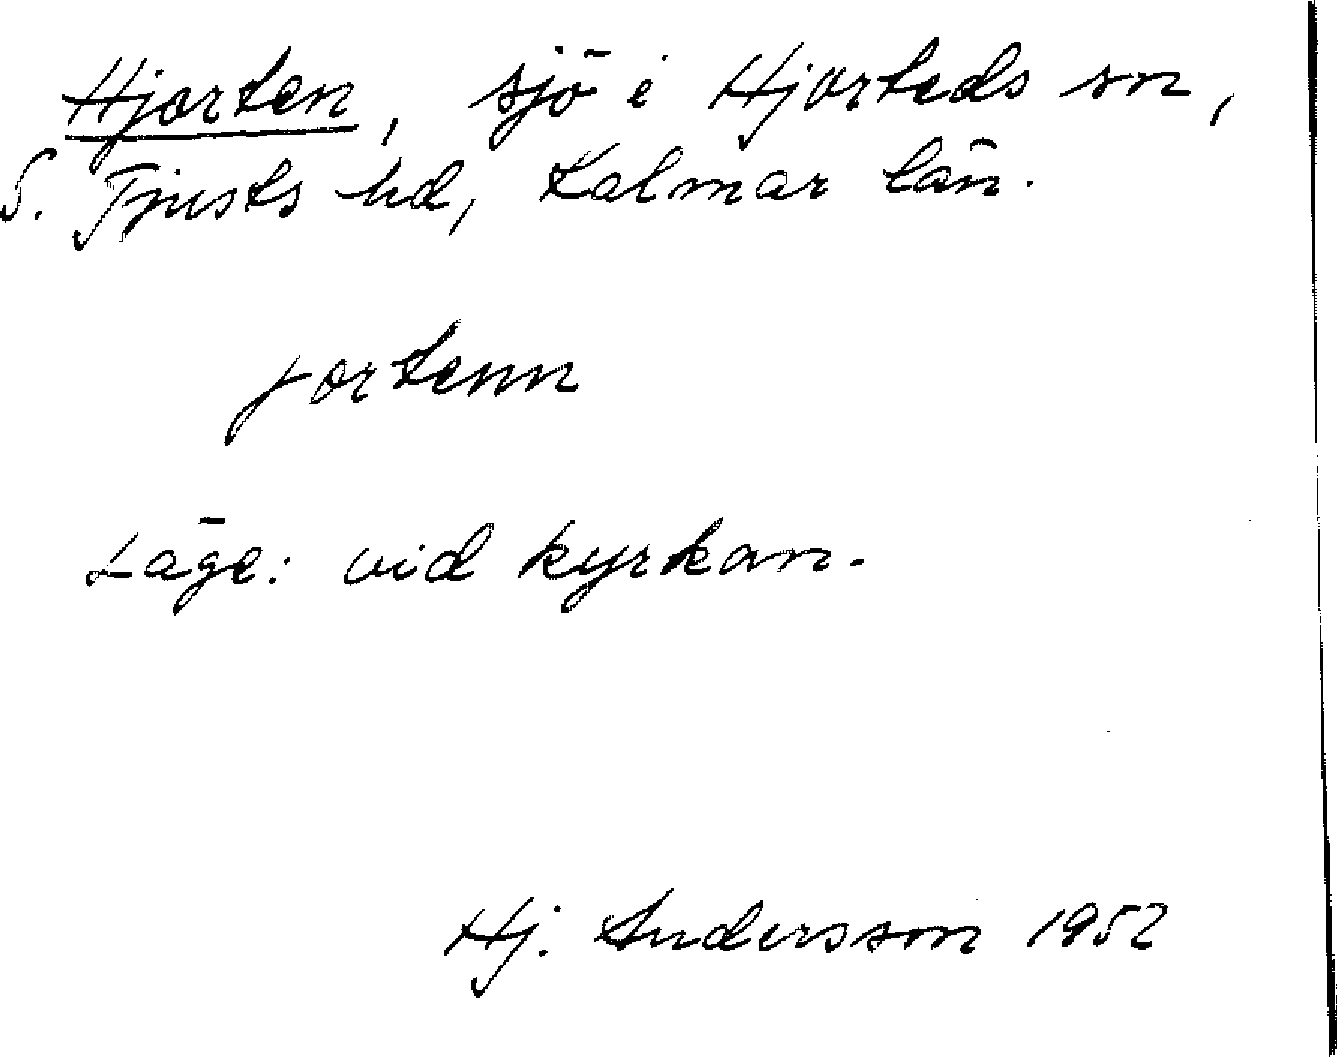 Hjorten, sjö i Hjorteds sn,
S. Tjusts hd, Kalmar län.
jortenn
Läge: vid kyrkan.
Hj. Andersson 1952